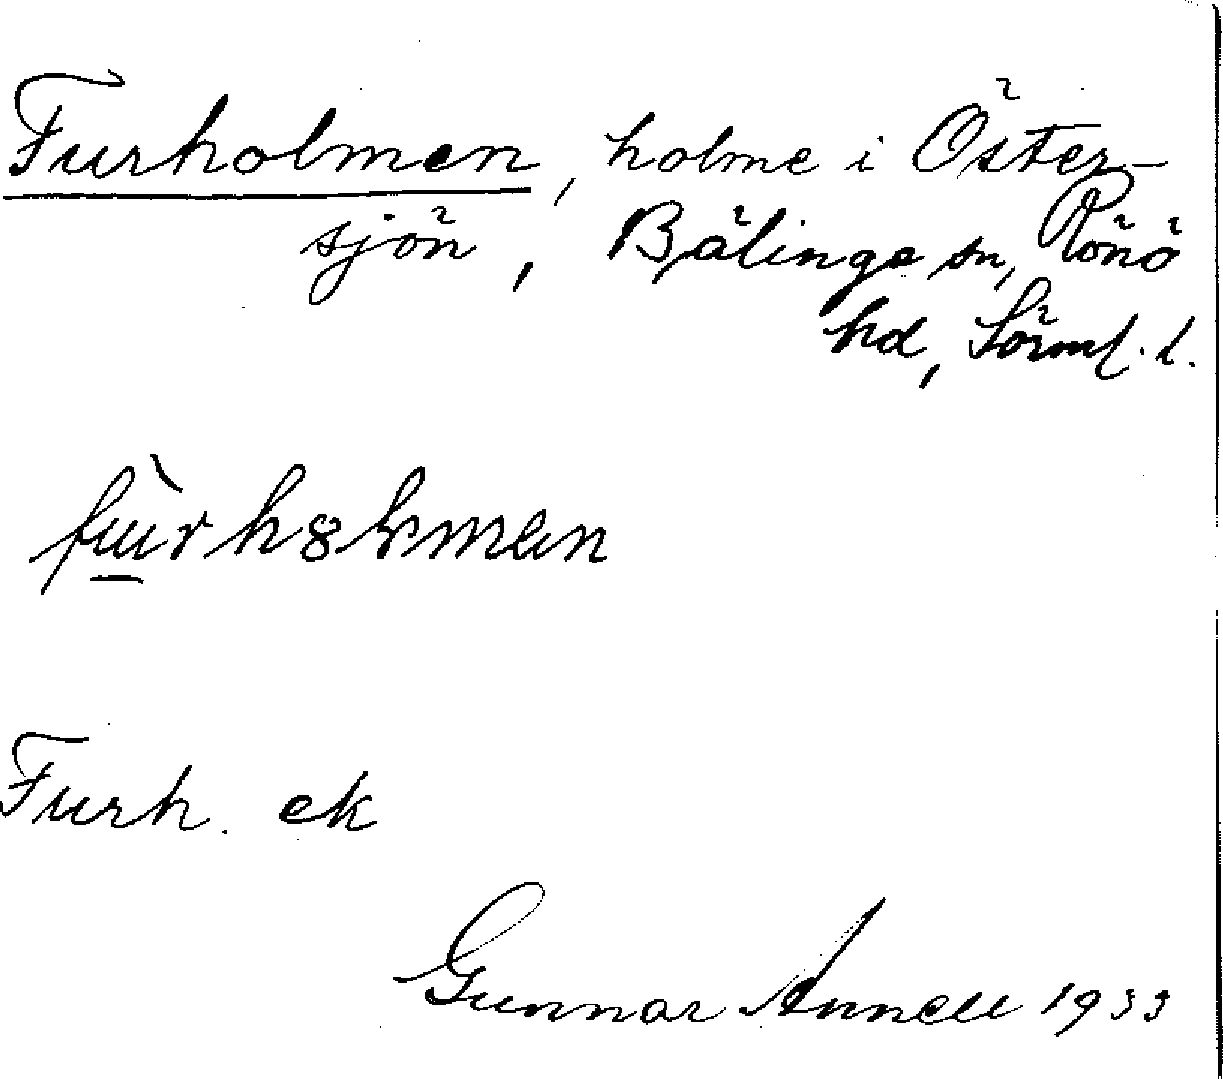 Furholmen, holme i Öster-
sjön, Bälinge sn, Rönö
hd, Sörml. l.
Furh. ek
Gunnar Annell 1933